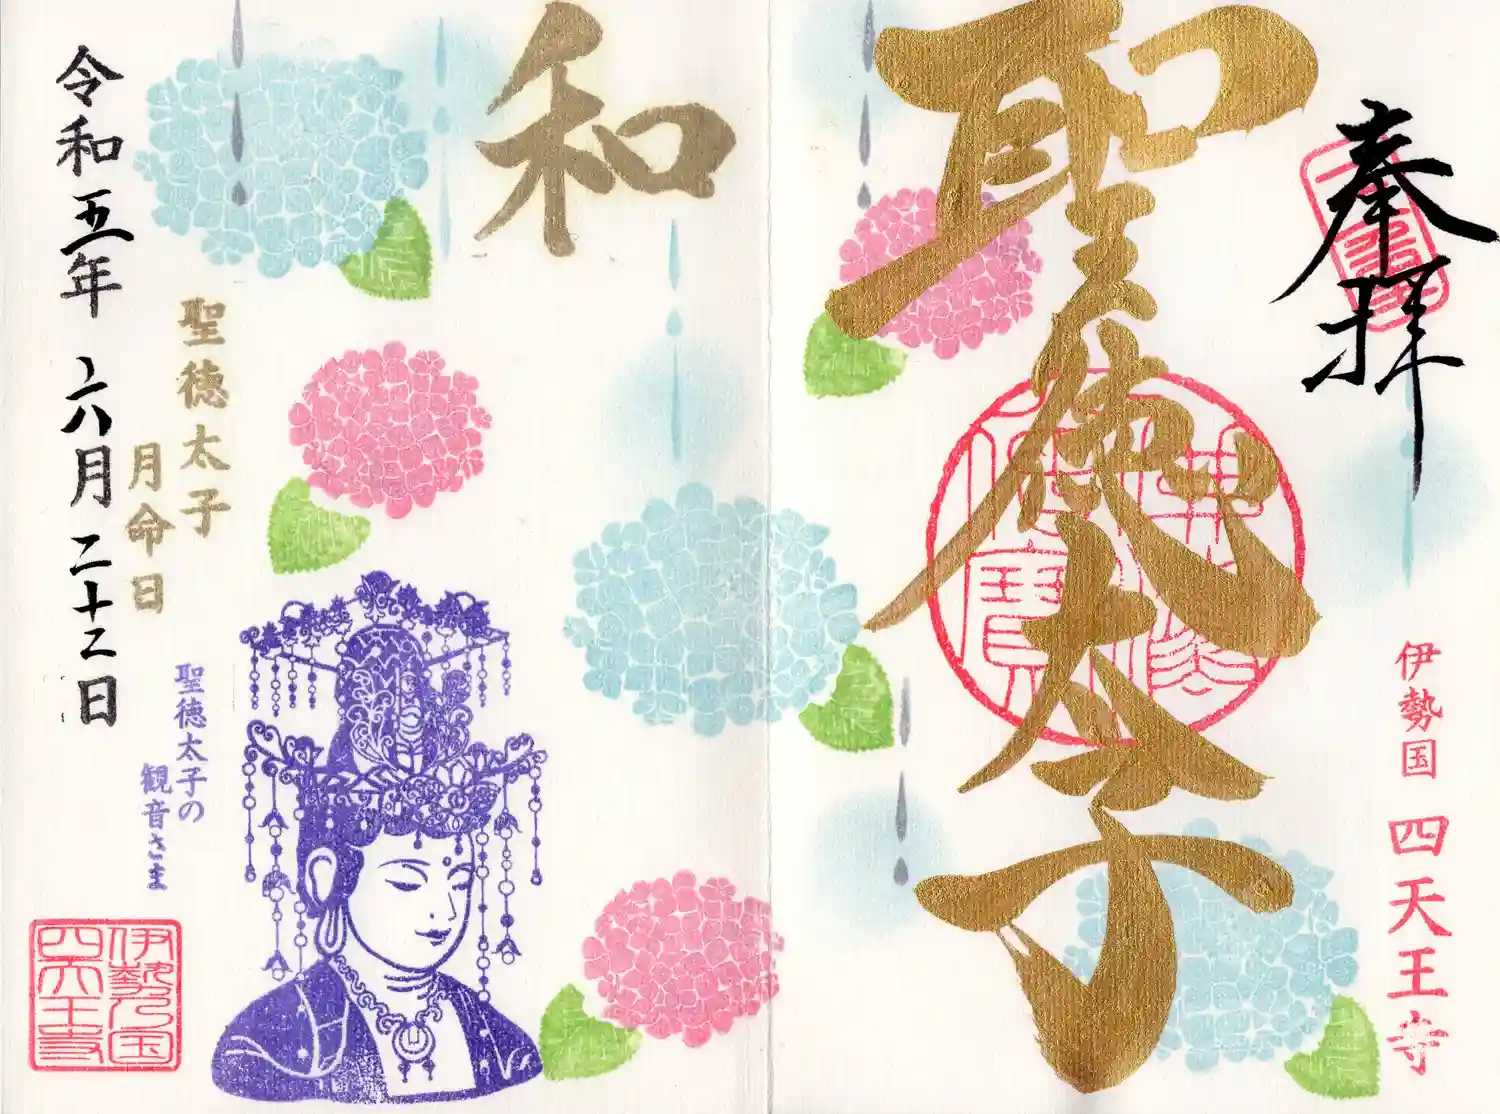 奉拝
聖徳太子
伊勢国 四天王寺
和
聖徳太子
月命日
令和五年 六月二十二日
聖徳太子の
観音さま
伊勢乃国
四天王寺